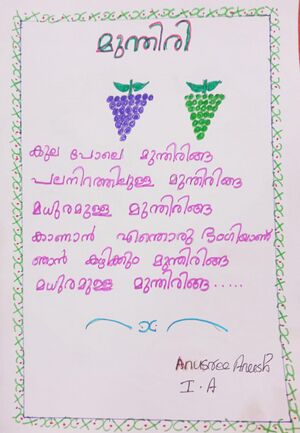 മുന്തിരി
കുല പോലെ മുന്തിരിങ്ങ
പലനിറത്തിലുള്ള മുന്തിരിങ്ങ
മധുരമുള്ള മുന്തിരിങ്ങ
കാണാൻ എന്തൊരു ഭംഗിയാണ്
ഞാൻ കഴിക്കും മുന്തിരിങ്ങ
മധുരമുള്ള മുന്തിരിങ്ങ.....
Anusree Aneesh
I.A